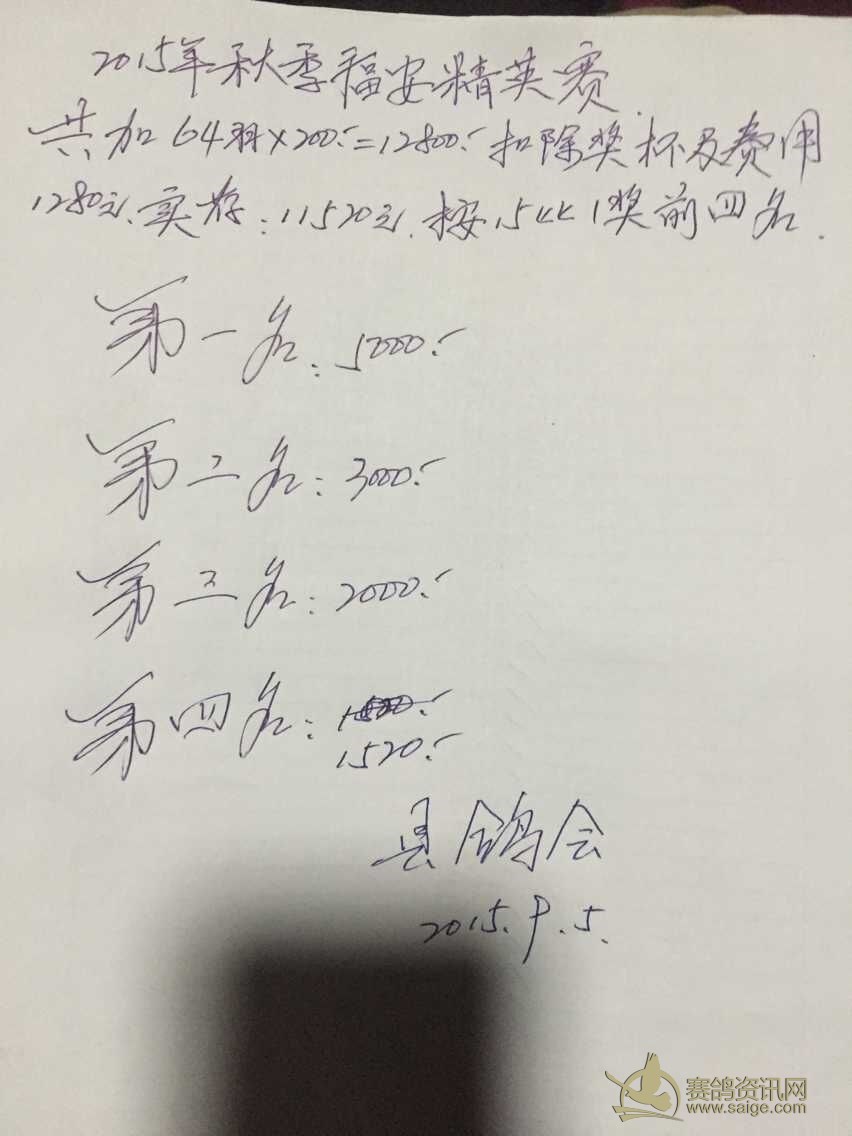 2015年秋季福安精英赛.
共加64羽×200.-=12800.-扣除奖杯及费用
1280元.实存:11520元.按15取1奖前四名.
第一名:5000.-
第二名:3000.-
第三名:2000.-
第四名:
1520.-
县鸽会
2015.9.5.
赛鸽资讯网
www.saige.com